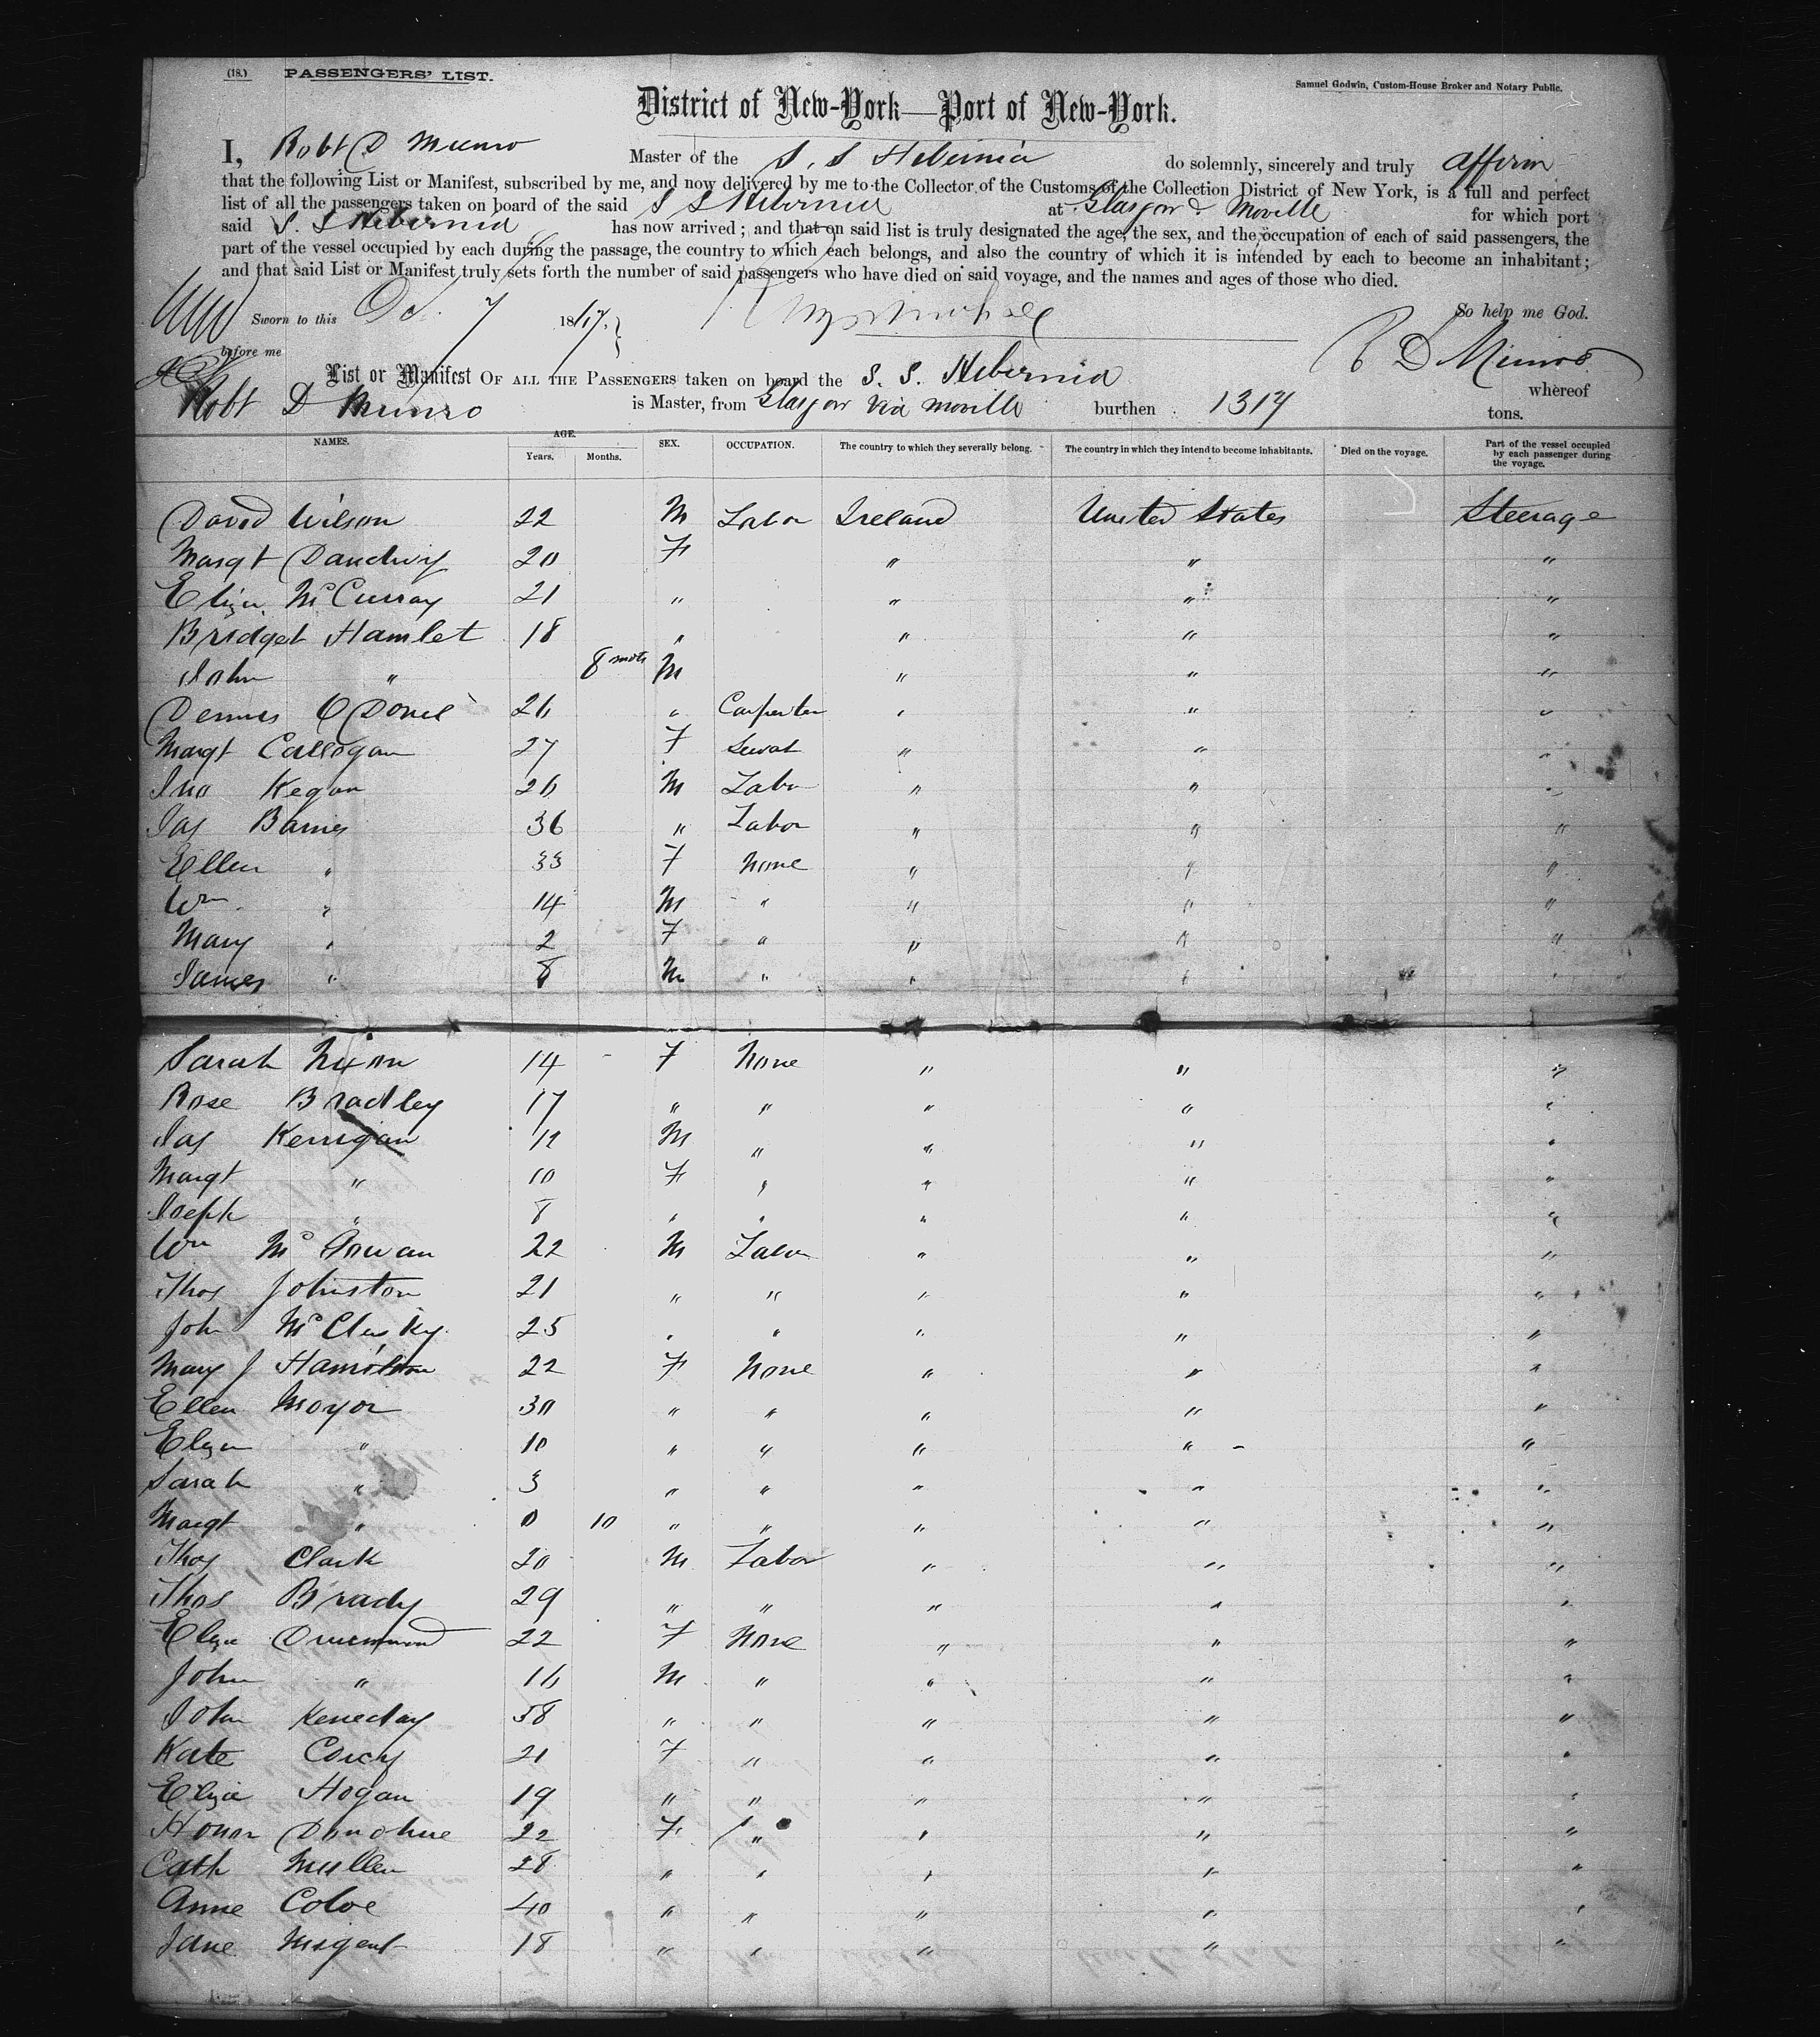 (18.) PASSENGERS' LIST.
Samuel Godwin, Custom-House Broker and Notary Public.
District of New-York—Port of New-York.
I, Robt D Munro Master of the S. S Hebernia do solemnly, sincerely and truly affirm
that the following List or Manifest, subscribed by me, and now delivered by me to the Collector of the Customs of the Collection District of New York, is a full and perfect
list of all the passengers taken on board of the said S S Hebernia at Glasgow & Moville for which port
said S. S Hebernia has now arrived; and that on said list is truly designated the age, the sex, and the occupation of each of said passengers, the
part of the vessel occupied by each during the passage, the country to which each belongs, and also the country of which it is intended by each to become an inhabitant;
and that said List or Manifest truly sets forth the number of said passengers who have died on said voyage, and the names and ages of those who died.
Sworn to this Oc. 7 18 So help me God.
before me R D Munro
List or Manifest OF ALL THE PASSENGERS taken on board the S. S. Hebernia whereof
Robt D Munro is Master, from Glasgow via Moville burthen 1317 tons.
NAMES. AGE. Years. Months. SEX. OCCUPATION. The country to which they severally belong. The country in which they intend to become inhabitants. Died on the voyage. Part of the vessel occupied by each passenger during the voyage.
David Wilson 22 M Labor Ireland United States Steerage
Margt 20 F " " "
Eliza McCurray 21 " " " "
Bridget Hamlet 18 " " " "
John " 8 mots M " " "
Dennis O Donel 26 " Carpenter " " "
Margt Callogan 27 F Servat " " "
Jno Kegan 26 M Labor " " "
Jas Barnes 36 " Labor " " "
Ellen " 33 F None " " "
Wm " 14 M " " " "
Mary " 2 F " " " "
James " 8 M " " " "
Sarah Nixon 14 - F None " " "
Rose Bradley 17 " " " " "
Jas Kerrigan 12 M " " " "
Margt " 10 F " " " "
Joseph " 8 " " " " "
Wm McGowan 22 M Labor " " "
Thos Johnston 21 " " " " "
John McClusky 25 " " " " "
Mary J Hamilton 22 F None " " "
Ellen Moyor 30 " " " " "
Eliza " 10 " " " " "
Sarah " 3 " " " " "
Margt " 0 10 " " " " "
Thos Clark 20 M Labor " " "
Thos Brady 29 " " " " "
Eliza Drummond 22 F None " " "
John " 16 M " " " "
John Keneday 58 " " " " "
Kate 21 F " " " "
Eliza Hogan 19 " " " " "
Honor Donohue 22 F " " " "
Cath Mullen 28 " " " " "
Anne Coloe 40 " " " " "
Jane 18 " " " " "